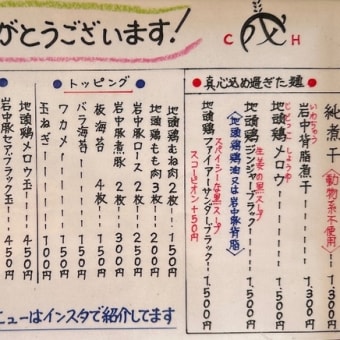 がとうございます!
C H
真心込め過ぎた麺
純煮干(動物系不使用)
1,300円
いわちゅう
岩中背脂煮干----1,300円
じとっこ しょうゆ
地頭鶏メロウ----1,500円
生姜の黒スープ
地頭鶏ジンジャーブラック--1,500円
〈地頭鶏鶏油又は岩中豚背脂〉
スパイシーな黒スープ
地頭鶏ファイアーサンダーブラック--1,500円
スコーピオン+50円
トッピング
地頭鶏むね肉 2枚---150円
地頭鶏もも肉 3枚---200円
岩中豚ロース 2枚---500円
岩中豚煮豚 2枚---300円
板海苔 4枚----150円
バラ海苔--------150円
ワカメ----------150円
玉ねぎ----------100円
地頭鶏メロウ玉----450円
岩中豚セアブラック玉--450円
ニューはインスタで紹介してます